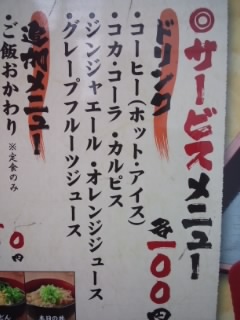 ◎サービスメニュー
ドリンク
各100円
・コーヒー(ホット・アイス)
・コカ・コーラ ・カルピス
・ジンジャエール ・オレンジジュース
・グレープフルーツジュース
追加メニュー
・ご飯おかわり ※定食のみ
0円